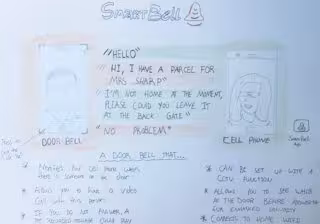 SMART BELL
"HELLO"
"HI, I HAVE A PARCEL FOR
MRS SHARP"
"I'M NOT HOME AT THE MOMENT,
PLEASE COULD YOU LEAVE IT
AT THE BACK GATE"
"NO PROBLEM"
DOOR BELL
CELL PHONE
A DOOR BELL THAT...
* NOTIFIES YOU
THERE IS SOMEONE AT THE DOOR
* ALLOWS YOU TO HAVE A VIDEO
CALL WITH THIS PERSON
* IF YOU DO NOT ANSWER, A
* CAN BE SET UP WITH A
CCTV FUNCTION
* ALLOWS YOU TO SEE WHO'S
AT THE DOOR BEFORE
FOR ENHANCED SECURITY
* CONNECTS TO HOME